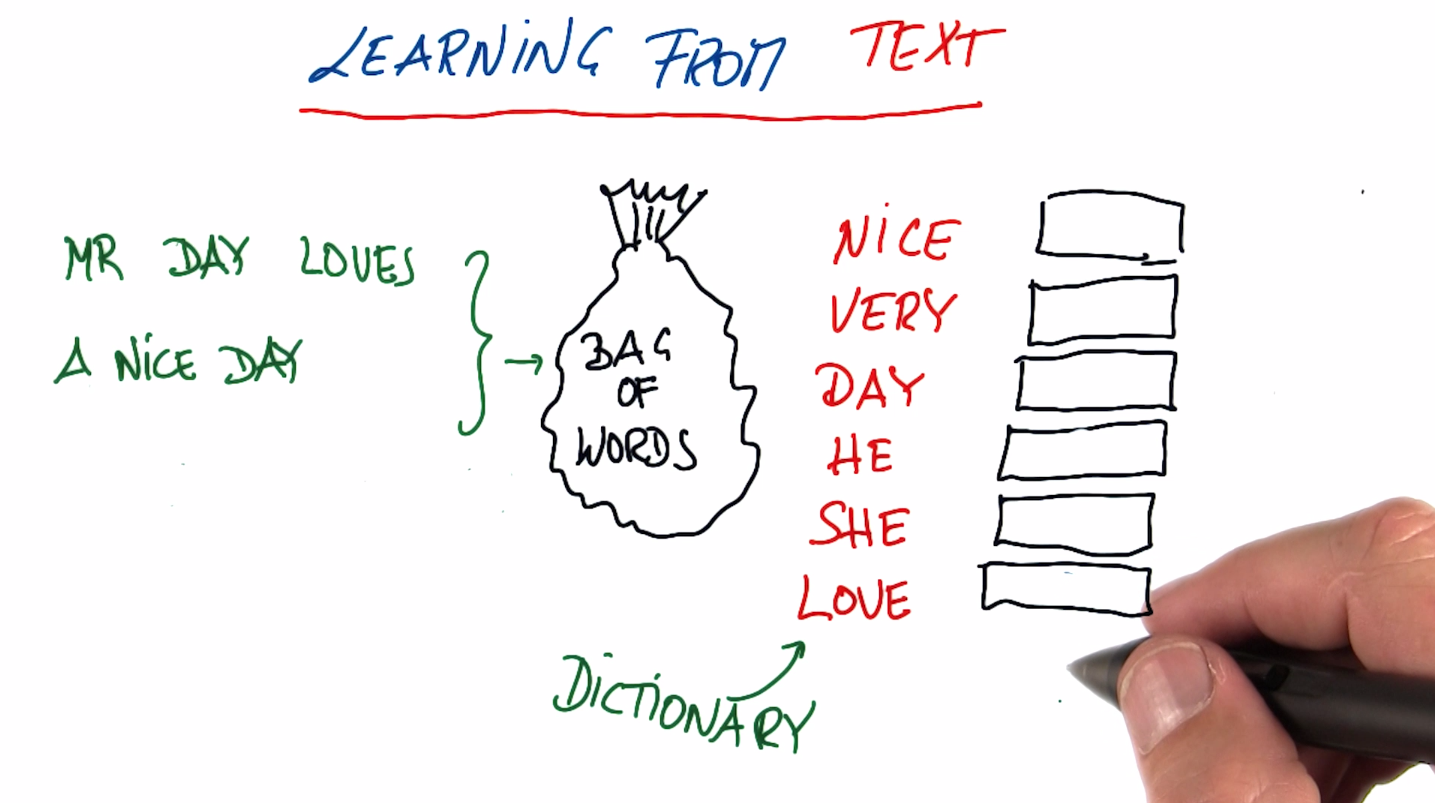 LEARNING FROM TEXT
MR DAY LOVES
A NICE DAY
BAG
OF
WORDS
NICE
VERY
DAY
HE
SHE
LOVE
DICTIONARY